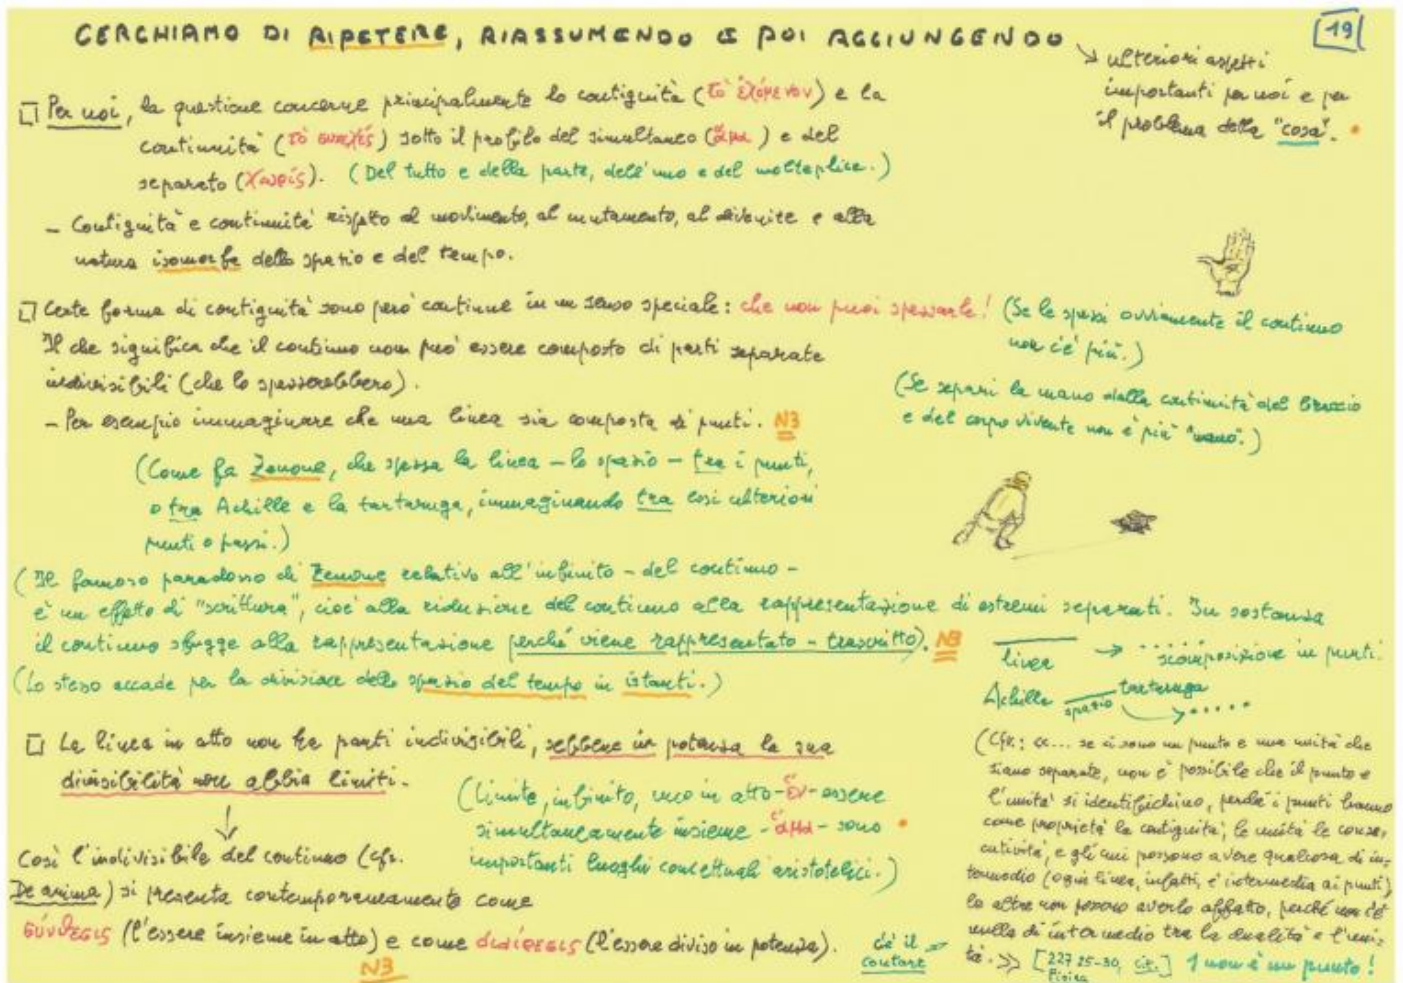 CERCHIAMO DI RIPETERE, RIASSUMENDO E POI AGGIUNGENDO
19
ulteriori aspetti
importanti per noi e per
il problema della "cosa".
Per noi, la questione concerne principalmente la contiguità (τὸ ἐχόμενον) e la
continuità (τὸ συνεχές) sotto il profilo del simultaneo (ἅμα) e del
separato (χωρίς). (Del tutto e della parte, dell'uno e del molteplice.)
- Contiguità e continuità rispetto al movimento, al mutamento, al divenire e alla
natura isomorfa dello spazio e del tempo.
Certe forme di contiguità sono però continue in un senso speciale: che non puoi spezzarle! (Se le spezzi ovviamente il continuo
non c'è più.)
Il che significa che il continuo non può essere composto di parti separate
indivisibili (che lo spezzerebbero).
(Se separi la mano dalla continuità del braccio
e del corpo vivente non è più "mano".)
- Per esempio immaginare che una linea sia composta di punti. NB
(Come fa Zenone, che spezza la linea - lo spazio - tra i punti,
o tra Achille e la tartaruga, immaginando tra essi ulteriori
punti o passi.)
(Il famoso paradosso di Zenone relativo all'infinito - del continuo -
è un effetto di "scrittura", cioè alla riduzione del continuo alla rappresentazione di estremi separati. In sostanza
il continuo sfugge alla rappresentazione perché viene rappresentato - trascritto). NB
linea → ..... scomposizione in punti.
(Lo stesso accade per la divisione dello spazio del tempo in istanti.)
Achille spazio tartaruga
→ .....
La linea in atto non ha parti indivisibili, sebbene in potenza la sua
divisibilità non abbia limiti.
(Limite, infinito, uno in atto - ἕν - essere
simultaneamente insieme - ἅμα - sono
importanti luoghi concettuali aristotelici.)
Così l'indivisibile del continuo (cfr.
De anima) si presenta contemporaneamente come
σύνθεσις (l'essere insieme in atto) e come διαίρεσις (l'essere diviso in potenza).
NB
c'è il
contare
(Cfr.: «... se ci sono un punto e una unità che
siano separate, non è possibile che il punto e
l'unità si identifichino, perché i punti hanno
come proprietà la contiguità, le unità la conse-
cutività, e gli uni possono avere qualcosa di in-
termedio (ogni linea, infatti, è intermedia ai punti)
le altre non possono averlo affatto, perché non c'è
nulla di intermedio tra la dualità e l'uni-
tà.» [227 25-30, cit.] 1 non è un punto!
Fisica